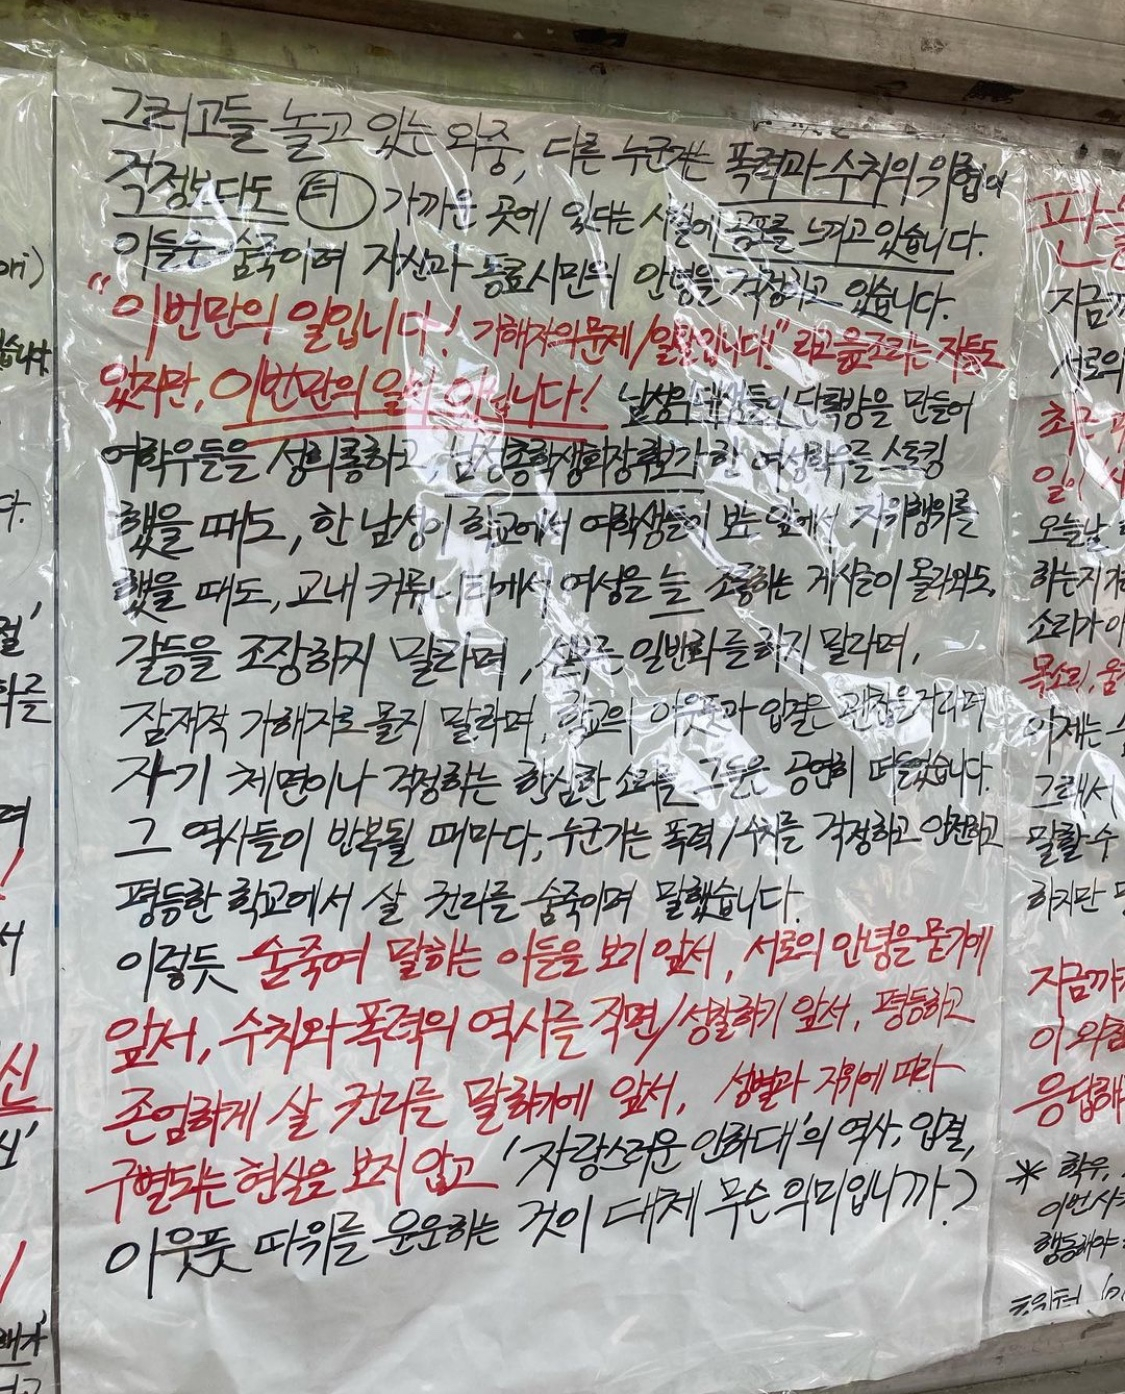 그러고들 놀고 있는 와중, 다른 누군가는 폭력과 수치의 위험이
걱정보다도 더 가까운 곳에 있다는 사실에 공포를 느끼고 있습니다.
이들은 숨죽이며 자신과 동료시민의 안녕을 걱정하고 있습니다.
"이번만의 일입니다! 가해자의 문제/일탈입니다!" 라고 읊조리는 자들도
있지만, 이번만의 일이 아닙니다! 남성의대생들이 단톡방을 만들어
여학우들을 성희롱하고, 남성총학생회장후보가 한 여성학우를 스토킹
했을 때도, 한 남성이 학교에서 여학생들이 보는 앞에서 자위행위를
했을 때도, 교내 커뮤니티에서 여성을 늘 조롱하는 게시글이 올라와도,
갈등을 조장하지 말라며, 섣부른 일반화를 하지 말라며,
잠재적 가해자로 몰지 말라며, 학교의 아웃풋과 입결은 괜찮을거라며
자기 체면이나 걱정하는 한심한 소리를 그들은 공연히 떠들었습니다.
그 역사들이 반복될 때마다, 누군가는 폭력/수치를 걱정하고 안전하고
평등한 학교에서 살 권리를 숨죽이며 말했습니다.
이렇듯 숨죽여 말하는 이들을 보기 앞서, 서로의 안녕을 묻기에
앞서, 수치와 폭력의 역사를 직면/성찰하기 앞서, 평등하고
존엄하게 살 권리를 말하기에 앞서, 성별과 지위에 따라
구별되는 현실을 보지 않고 '자랑스러운 인하대'의 역사, 입결,
아웃풋 따위를 운운하는 것이 대체 무슨 의미입니까?
지금까
서로의
최근
일이
오늘날
하는지
소리가
목소리,
이제는
그래서
말할 수
하지만
지금까지
이
응답해
* 학우,
이번 사
행동해야